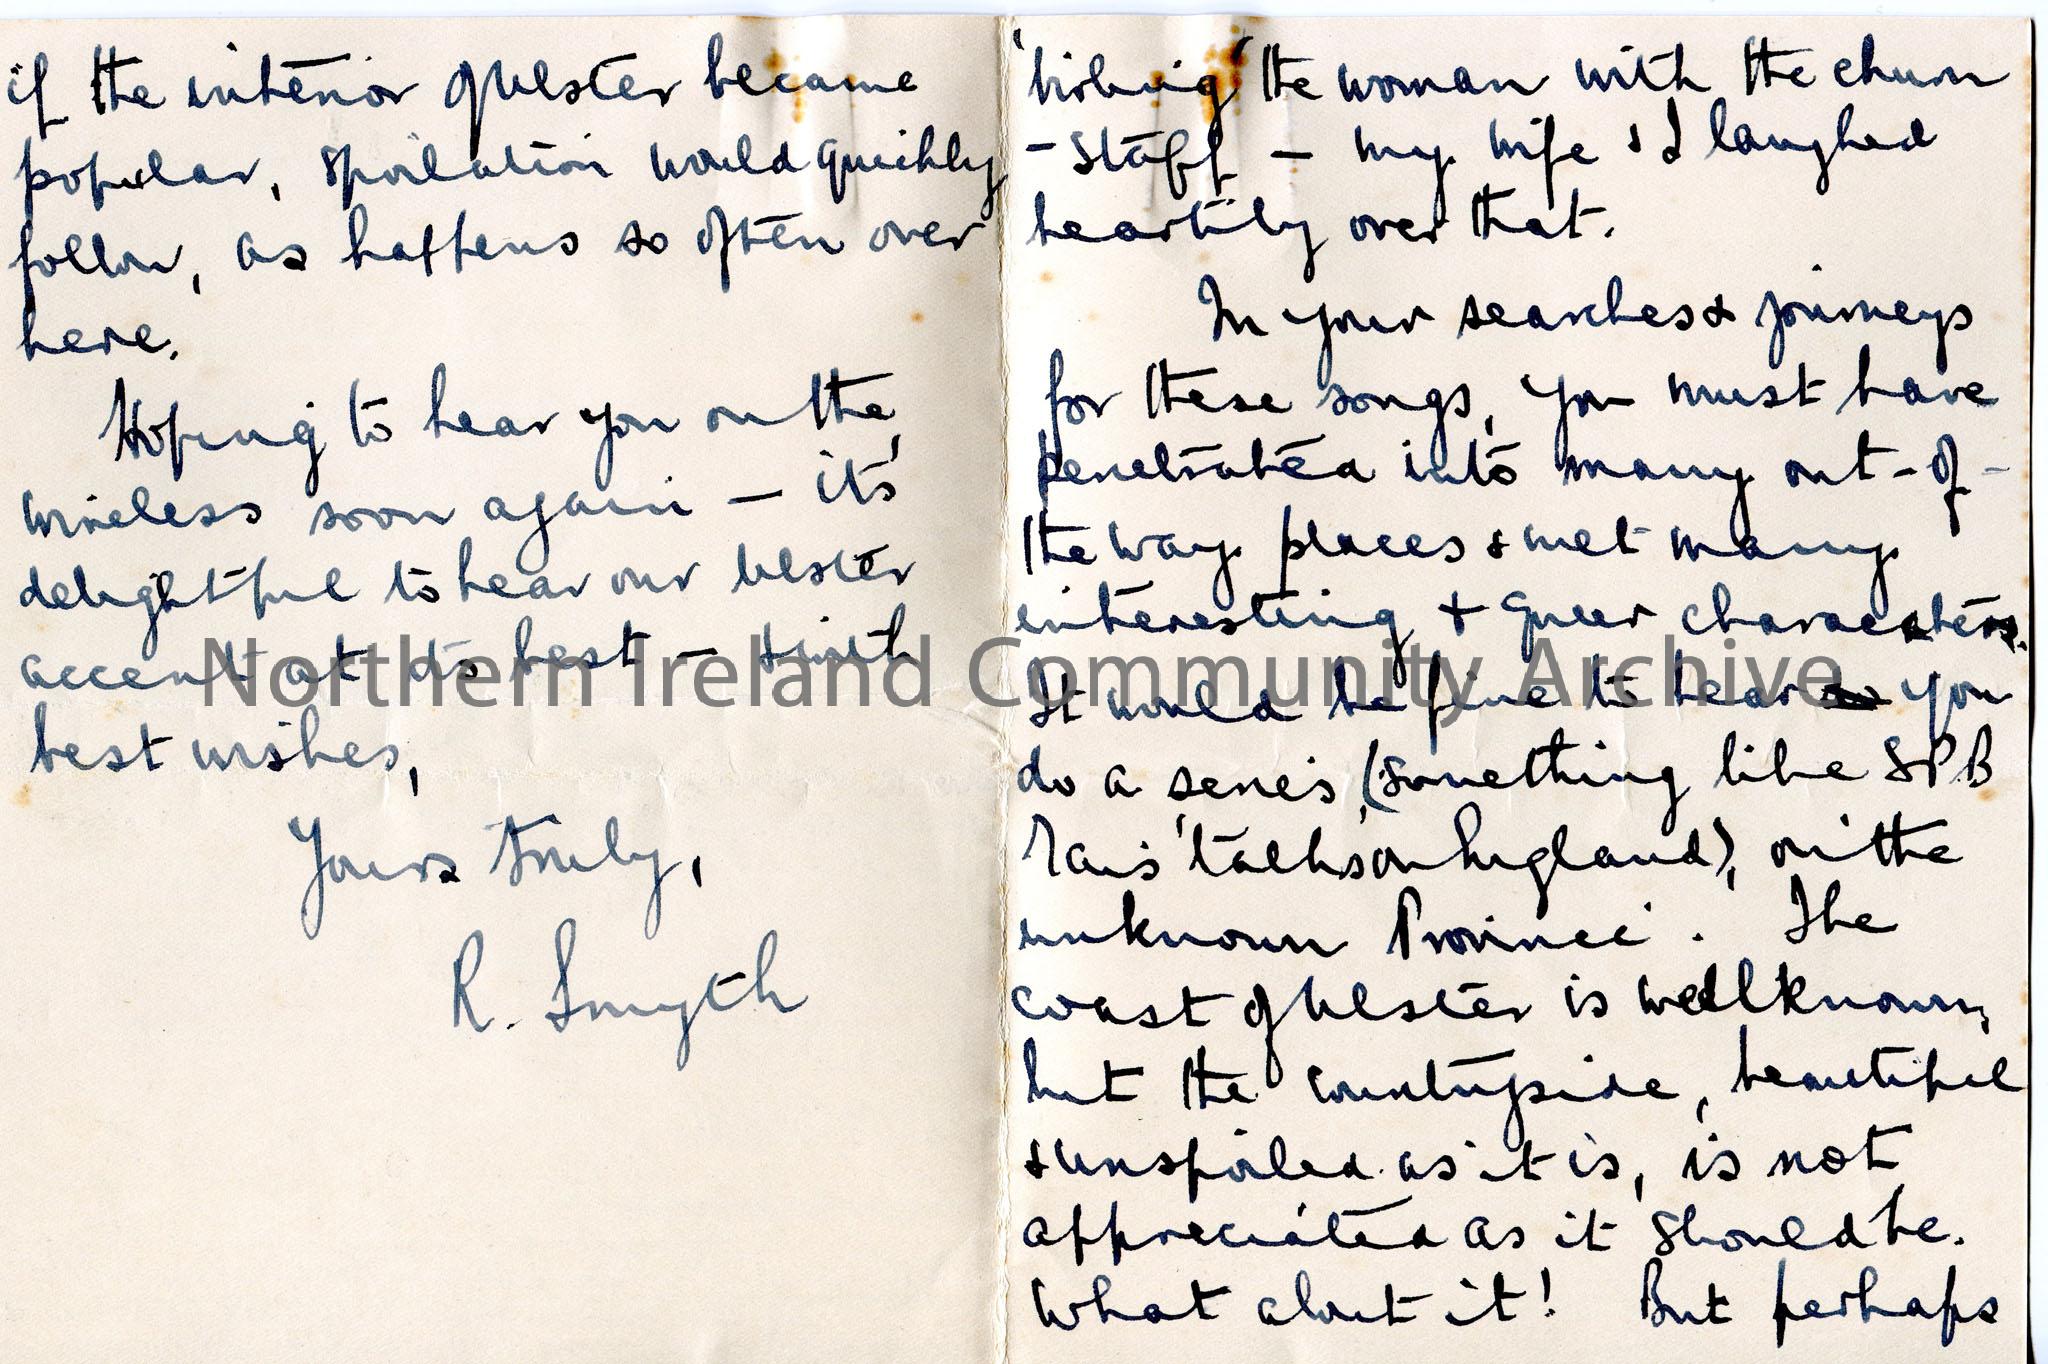 the woman with the churn
- staff - my wife & I laughed
heartily over that.
In your searches & journeys
for these songs, you must have
penetrated into many out-of-
the way places & met many
interesting + queer characters.
It would be fine to hear you
do a series, (something like S.P.B
Rais' talks on England), on 'the
unknown Province'. The
coast of Ulster is well known,
but the countryside, beautiful
& unspoiled as it is, is not
appreciated as it should be.
What about it! But perhaps
if the interior of Ulster became
popular, spoilation would quickly
follow, as happens so often over
here.
Hoping to hear you on the
wireless soon again - it's
delightful to hear our Ulster
accent at its best - & with
best wishes,
Yours truly,
R. Smyth
Northern Ireland Community Archive